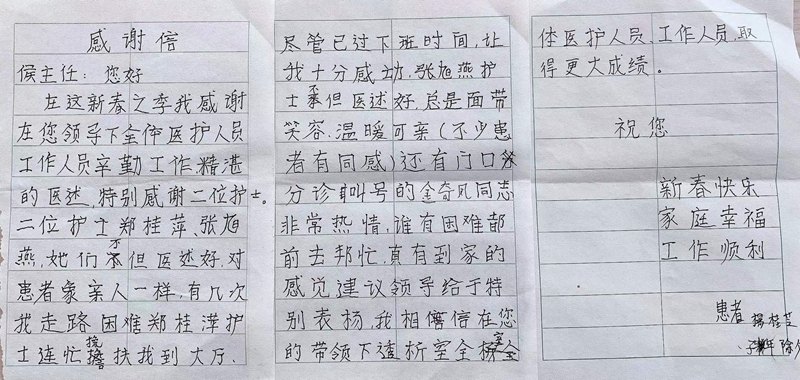 感谢信
候主任：您好
在这新春之季我感谢
在您领导下全体医护人员
工作人员辛勤工作，精湛
的医述，特别感谢二位护士。
二位护士郑桂萍、张旭
燕，她们不但医述好，对
患者象亲人一样，有几次
我走路困难郑桂萍护
士连忙搀扶我到大厅．
尽管已过下班时间，让
我十分感动，张旭燕护
士不但医述好，总是面带
笑容，温暖可亲（不少患
者有同感）还有门口
分诊叫号的金奇凤同志
非常热情，谁有困难都
前去帮忙，真有到家的
感觉建议领导给于特
别表杨，我相信在您
的带领下透析室全
体医护人员、工作人员，取
得更大成绩。
祝您
新春快乐
家庭幸福
工作顺利
患者
年除夕